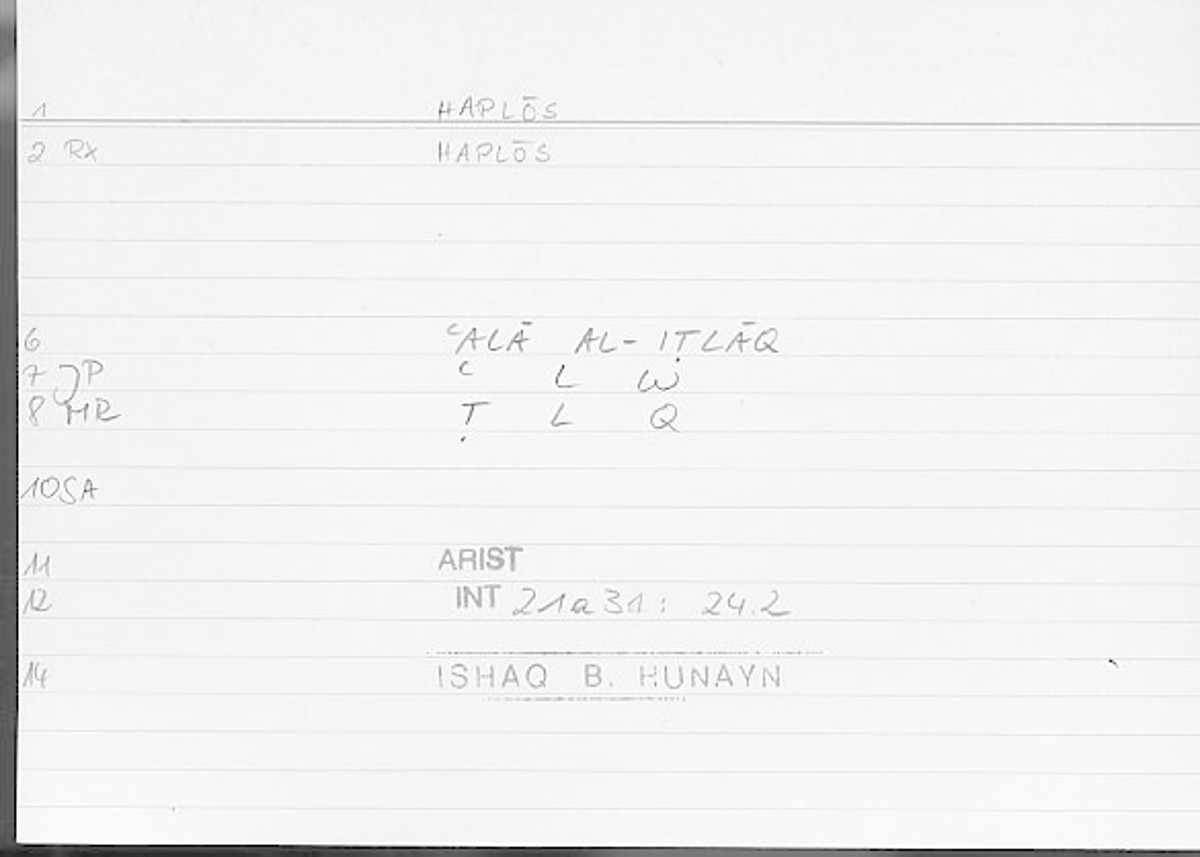 1 HAPLŌS
2 RX HAPLŌS
6 ʿALĀ AL-IṬLĀQ
7 JP ʿ L W
8 MR Ṭ L Q
10 SA
11 ARIST
12 INT 21a31: 24.2
14 ISHAQ B. HUNAYN